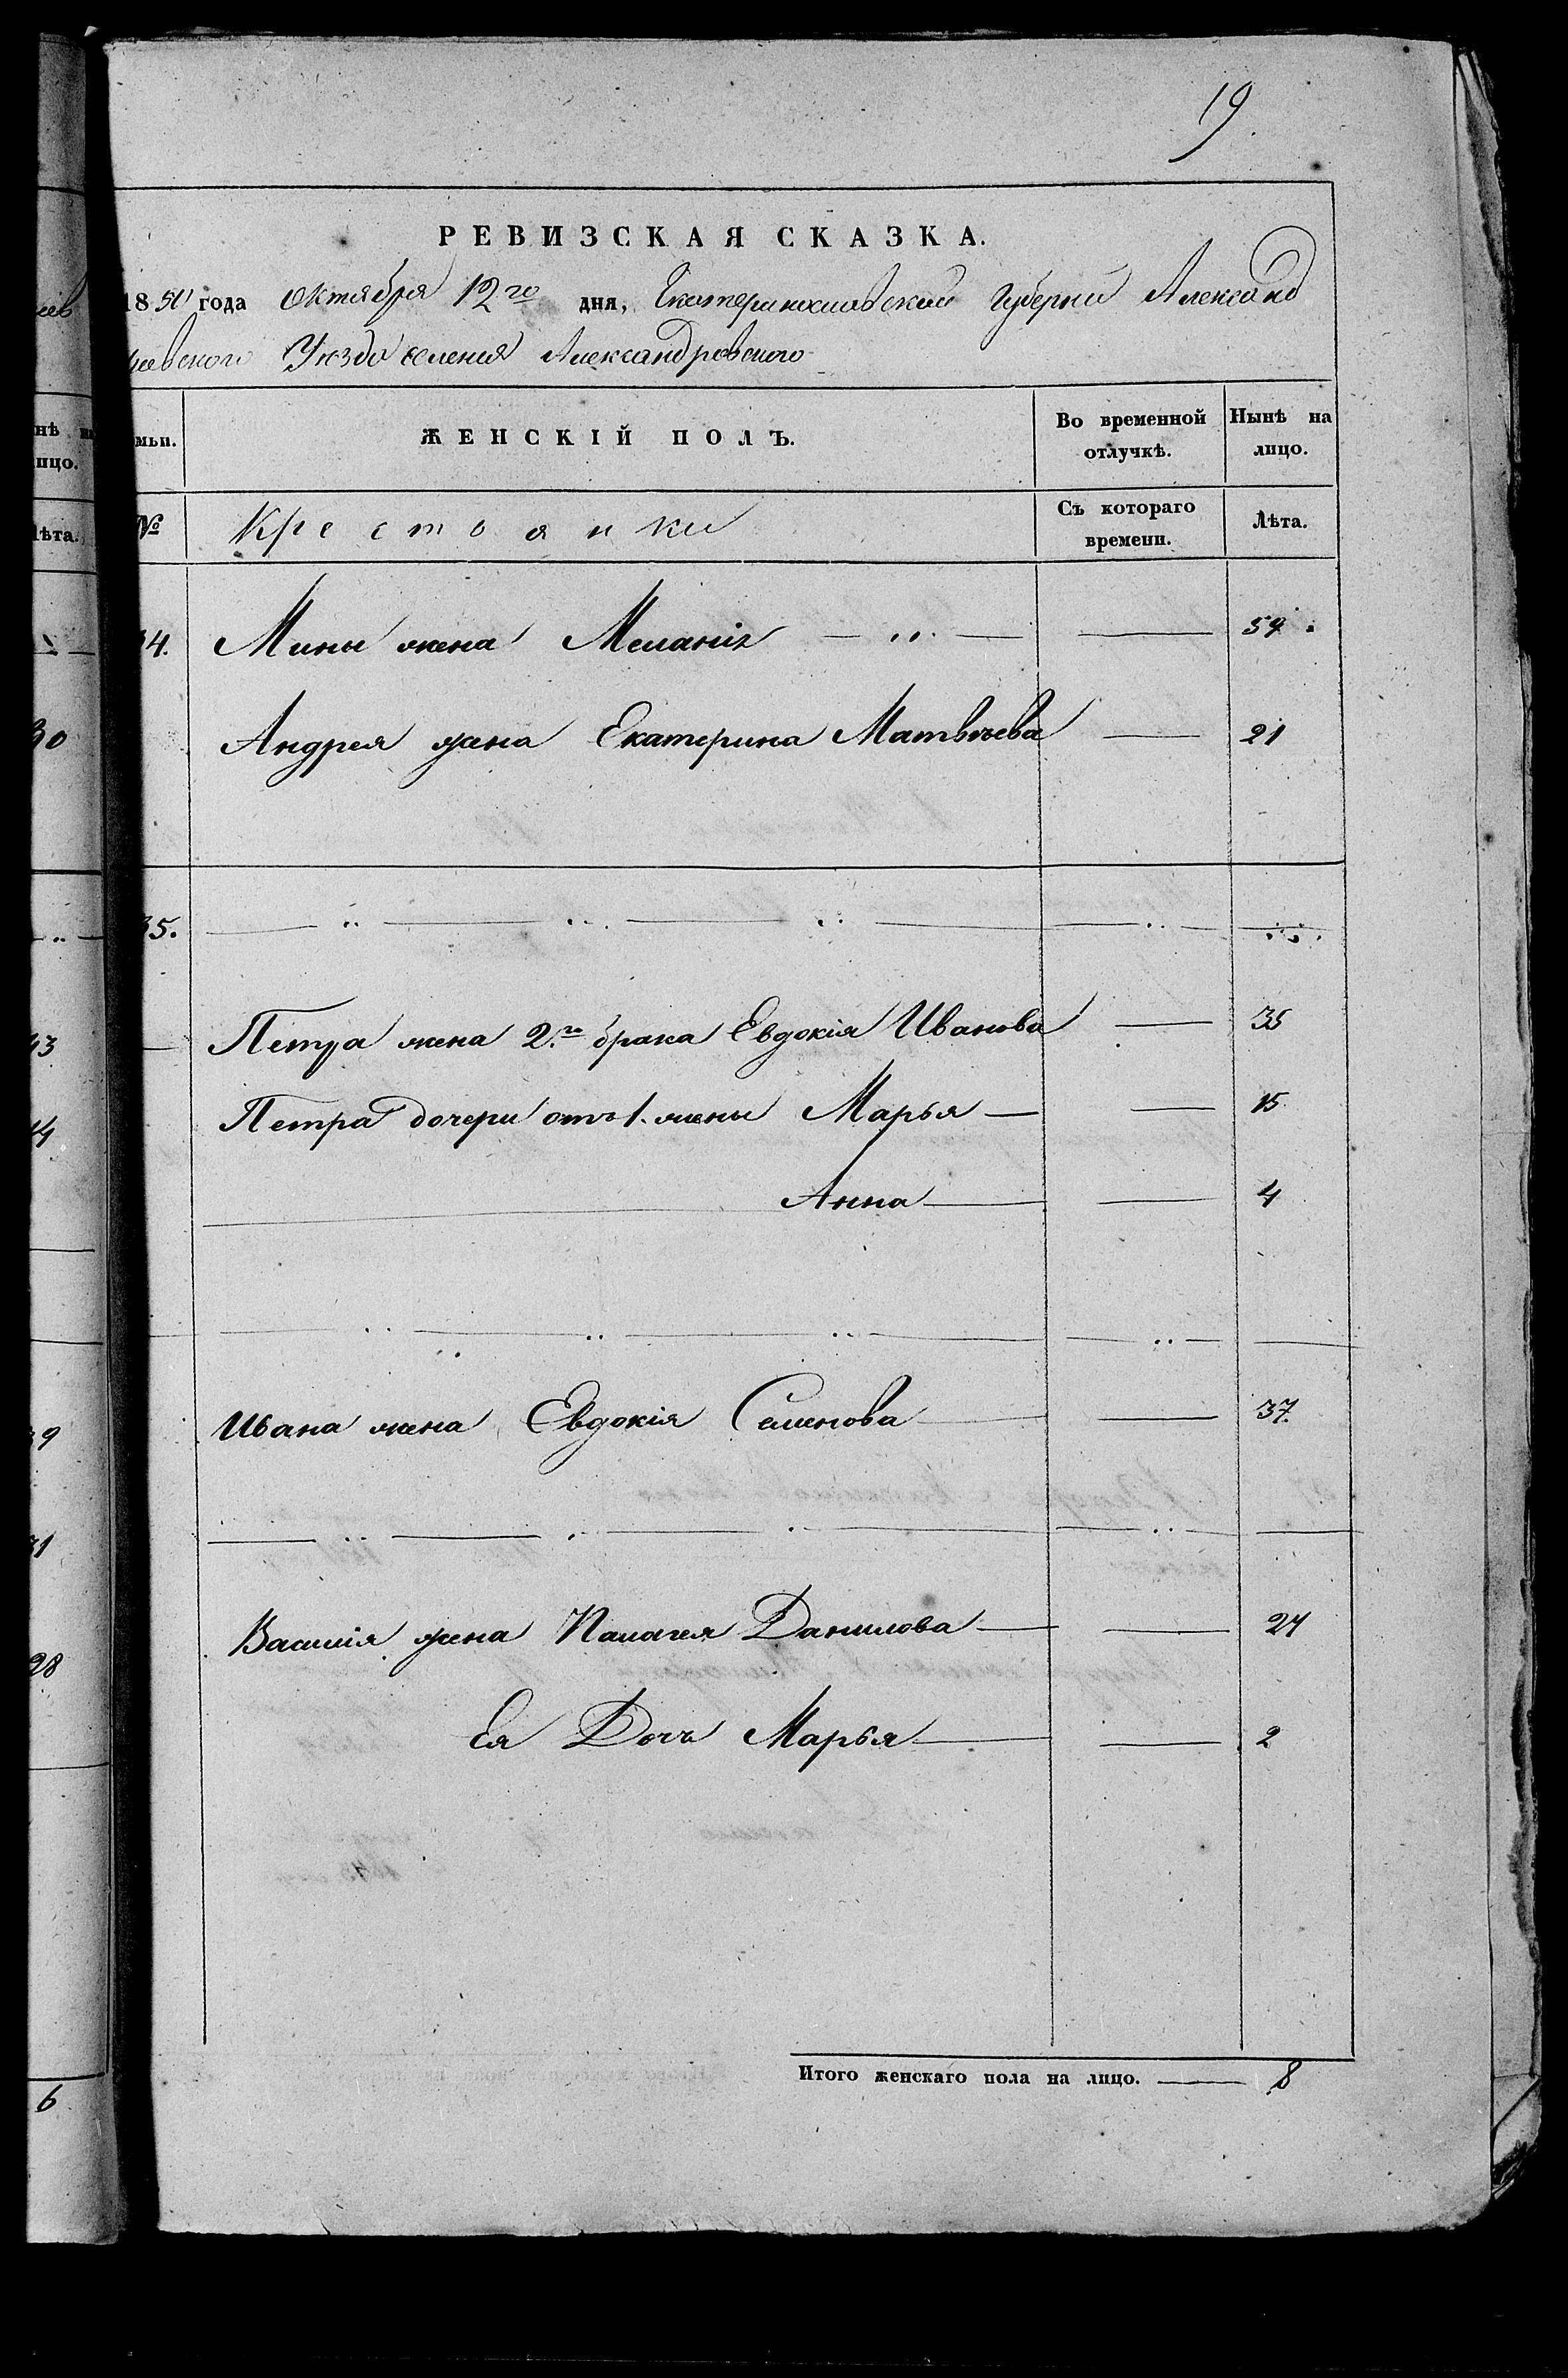 19.
РЕВИЗСКАЯ СКАЗКА.
1850 года Октября 12го дня, Екатеринославской Губерніи Александ
ровского Уѣзда селенія Александровского
мьи. ЖЕНСКІЙ ПОЛЪ. Во временной отлучкѣ. Нынѣ на лицо.
№ Крестьянки Съ котораго времени. Лѣта.
34. Мины жена Меланія — „ — — 59
Андрея жена Екатерина Матвѣева — 21
35.
Петра жена 2го брака Евдокія Иванова — 35
Петра дочери отъ 1. жены Марья — — 15
Анна — — 4
Ивана жена Евдокія Семенова — — 37.
Василія жена Палагея Данилова — — 24
Ея Дочь Марья — — 2
Итого женскаго пола на лицо. — 8
нѣ на
лицо.
Лѣта.
30
43
14
39
31
28
6